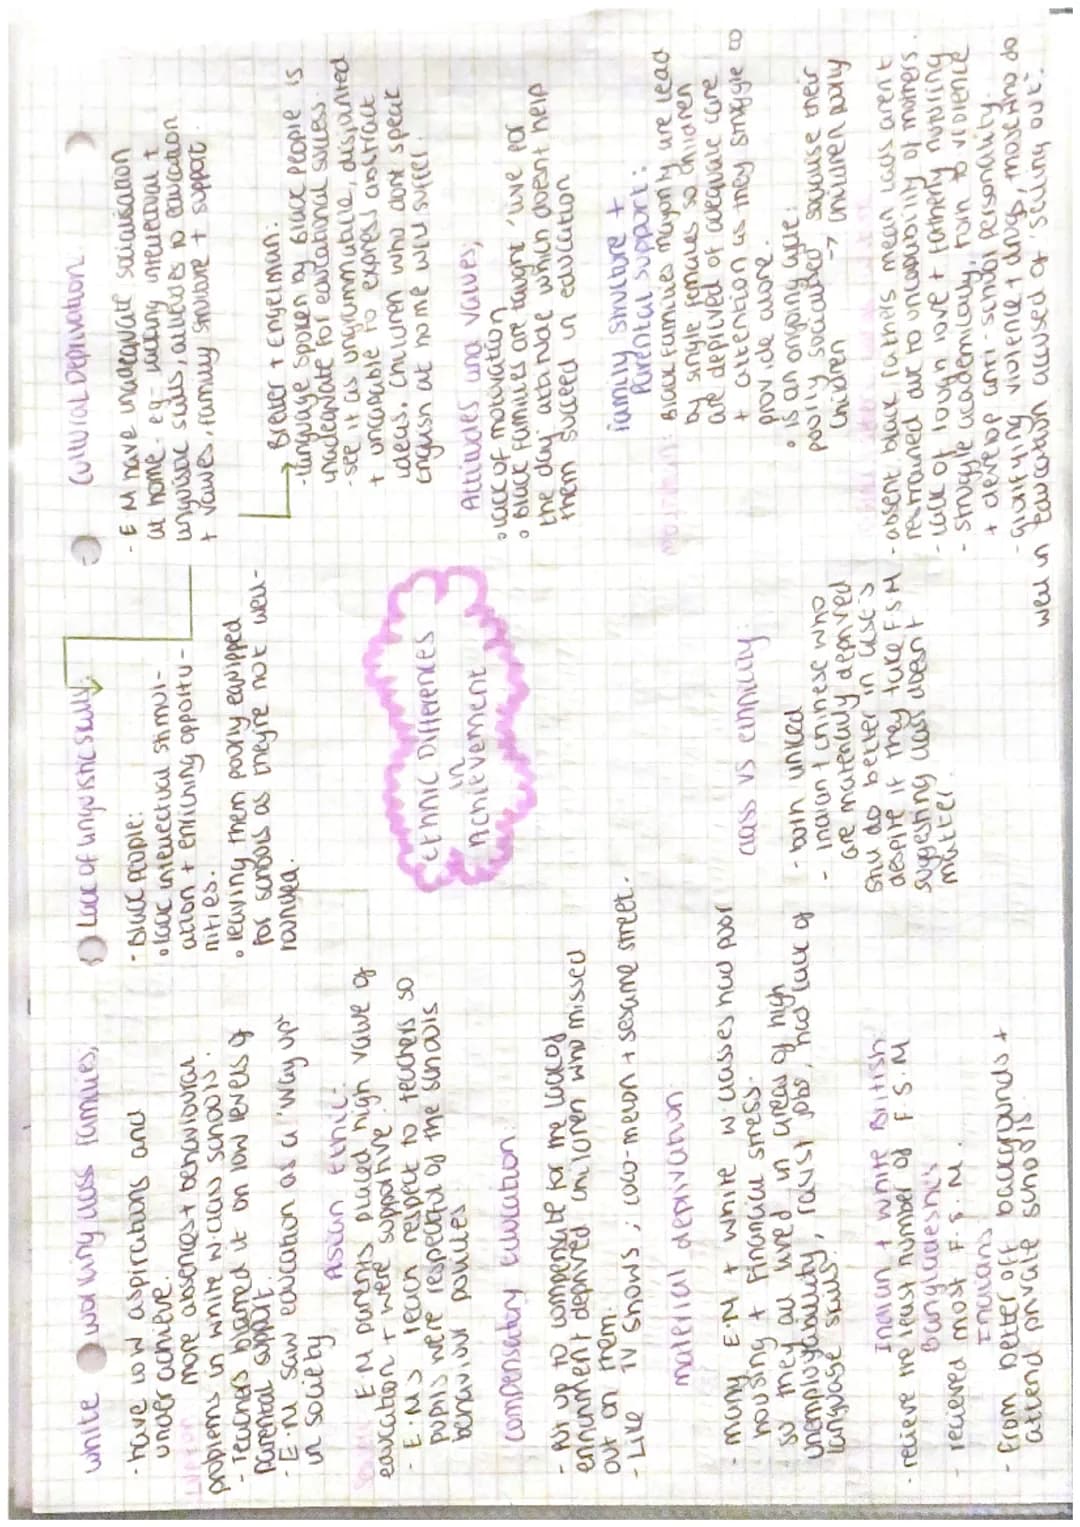 white working class families;
- have low aspirations and
under achieve.
more absences + behavioural
problems in white w.class schools.
- Teachers blamed it on low levels of
parental support.
- E.M saw education as a 'way up'
in society
Asian ethic:
E.M parents placed high value of
education + were supportive
- E.M's learn respect to teachers so
pupils were respectful of the schools
behaviour policies
compensatory Education:
- Put up to compensate for the lack of
enrichment deprived children who missed
out on them.
- Like TV shows; coco-melon + sesame street.
material deprivation:
- many E.M + white w.classes had poor
housing + financial stress.
so they all lived in areas of high
unemployability, racist jobs, had lack of
language skills.
Indian + white British:
- recieve the least number of F.S.M
Bangladeshis
- recieved most F.S.M.
Indians
- From better off backgrounds +
attend private schools
Lack of linguistic skills:
- Black people:
• lack intellectual stimul-
ation + enriching opportu-
nities.
• leaving them poorly equipped
for schools as theyre not well-
rounded.
Ethnic Differences
in
Achievement
class vs ethnicity:
- both linked
- Indian + chinese who
are materially deprived
still do better in GCSE's
despite if they take FSM
suggesting class doesnt
matter.
Cultural Deprivation:
- E M have inadequate socialisation
at home. eg- lacking intellectual +
linguistic skills, attitudes to education
+ values, family structure + support.
Breiter + Engelman:
- language spoken by Black People is
inadequate for educational success.
- see it as ungrammatical, disjointed
+ uncapable to express abstract
ideas. Children who dont speak
English at home will suffer.
Attitudes and values;
• lack of motivation
• Black Families are taught 'live for
the day' attitude which doesnt help
them succeed in education
Family structure +
Parental support:
Black families majority are lead
by single females so children
are deprived of adequate care
+ attention as they struggle to
provide alone.
• Is an ongoing cycle:
poorly socialised socialise their
children -> children poorly
- absent black fathers mean lads arent
restrained due to uncapability of mothers.
- lack of tough love + fatherly nurturing
- struggle academically, turn to violence
+ develop anti-school personality.
- glorifying violence + drugs, those who do
well in Education accused of 'selling out'.